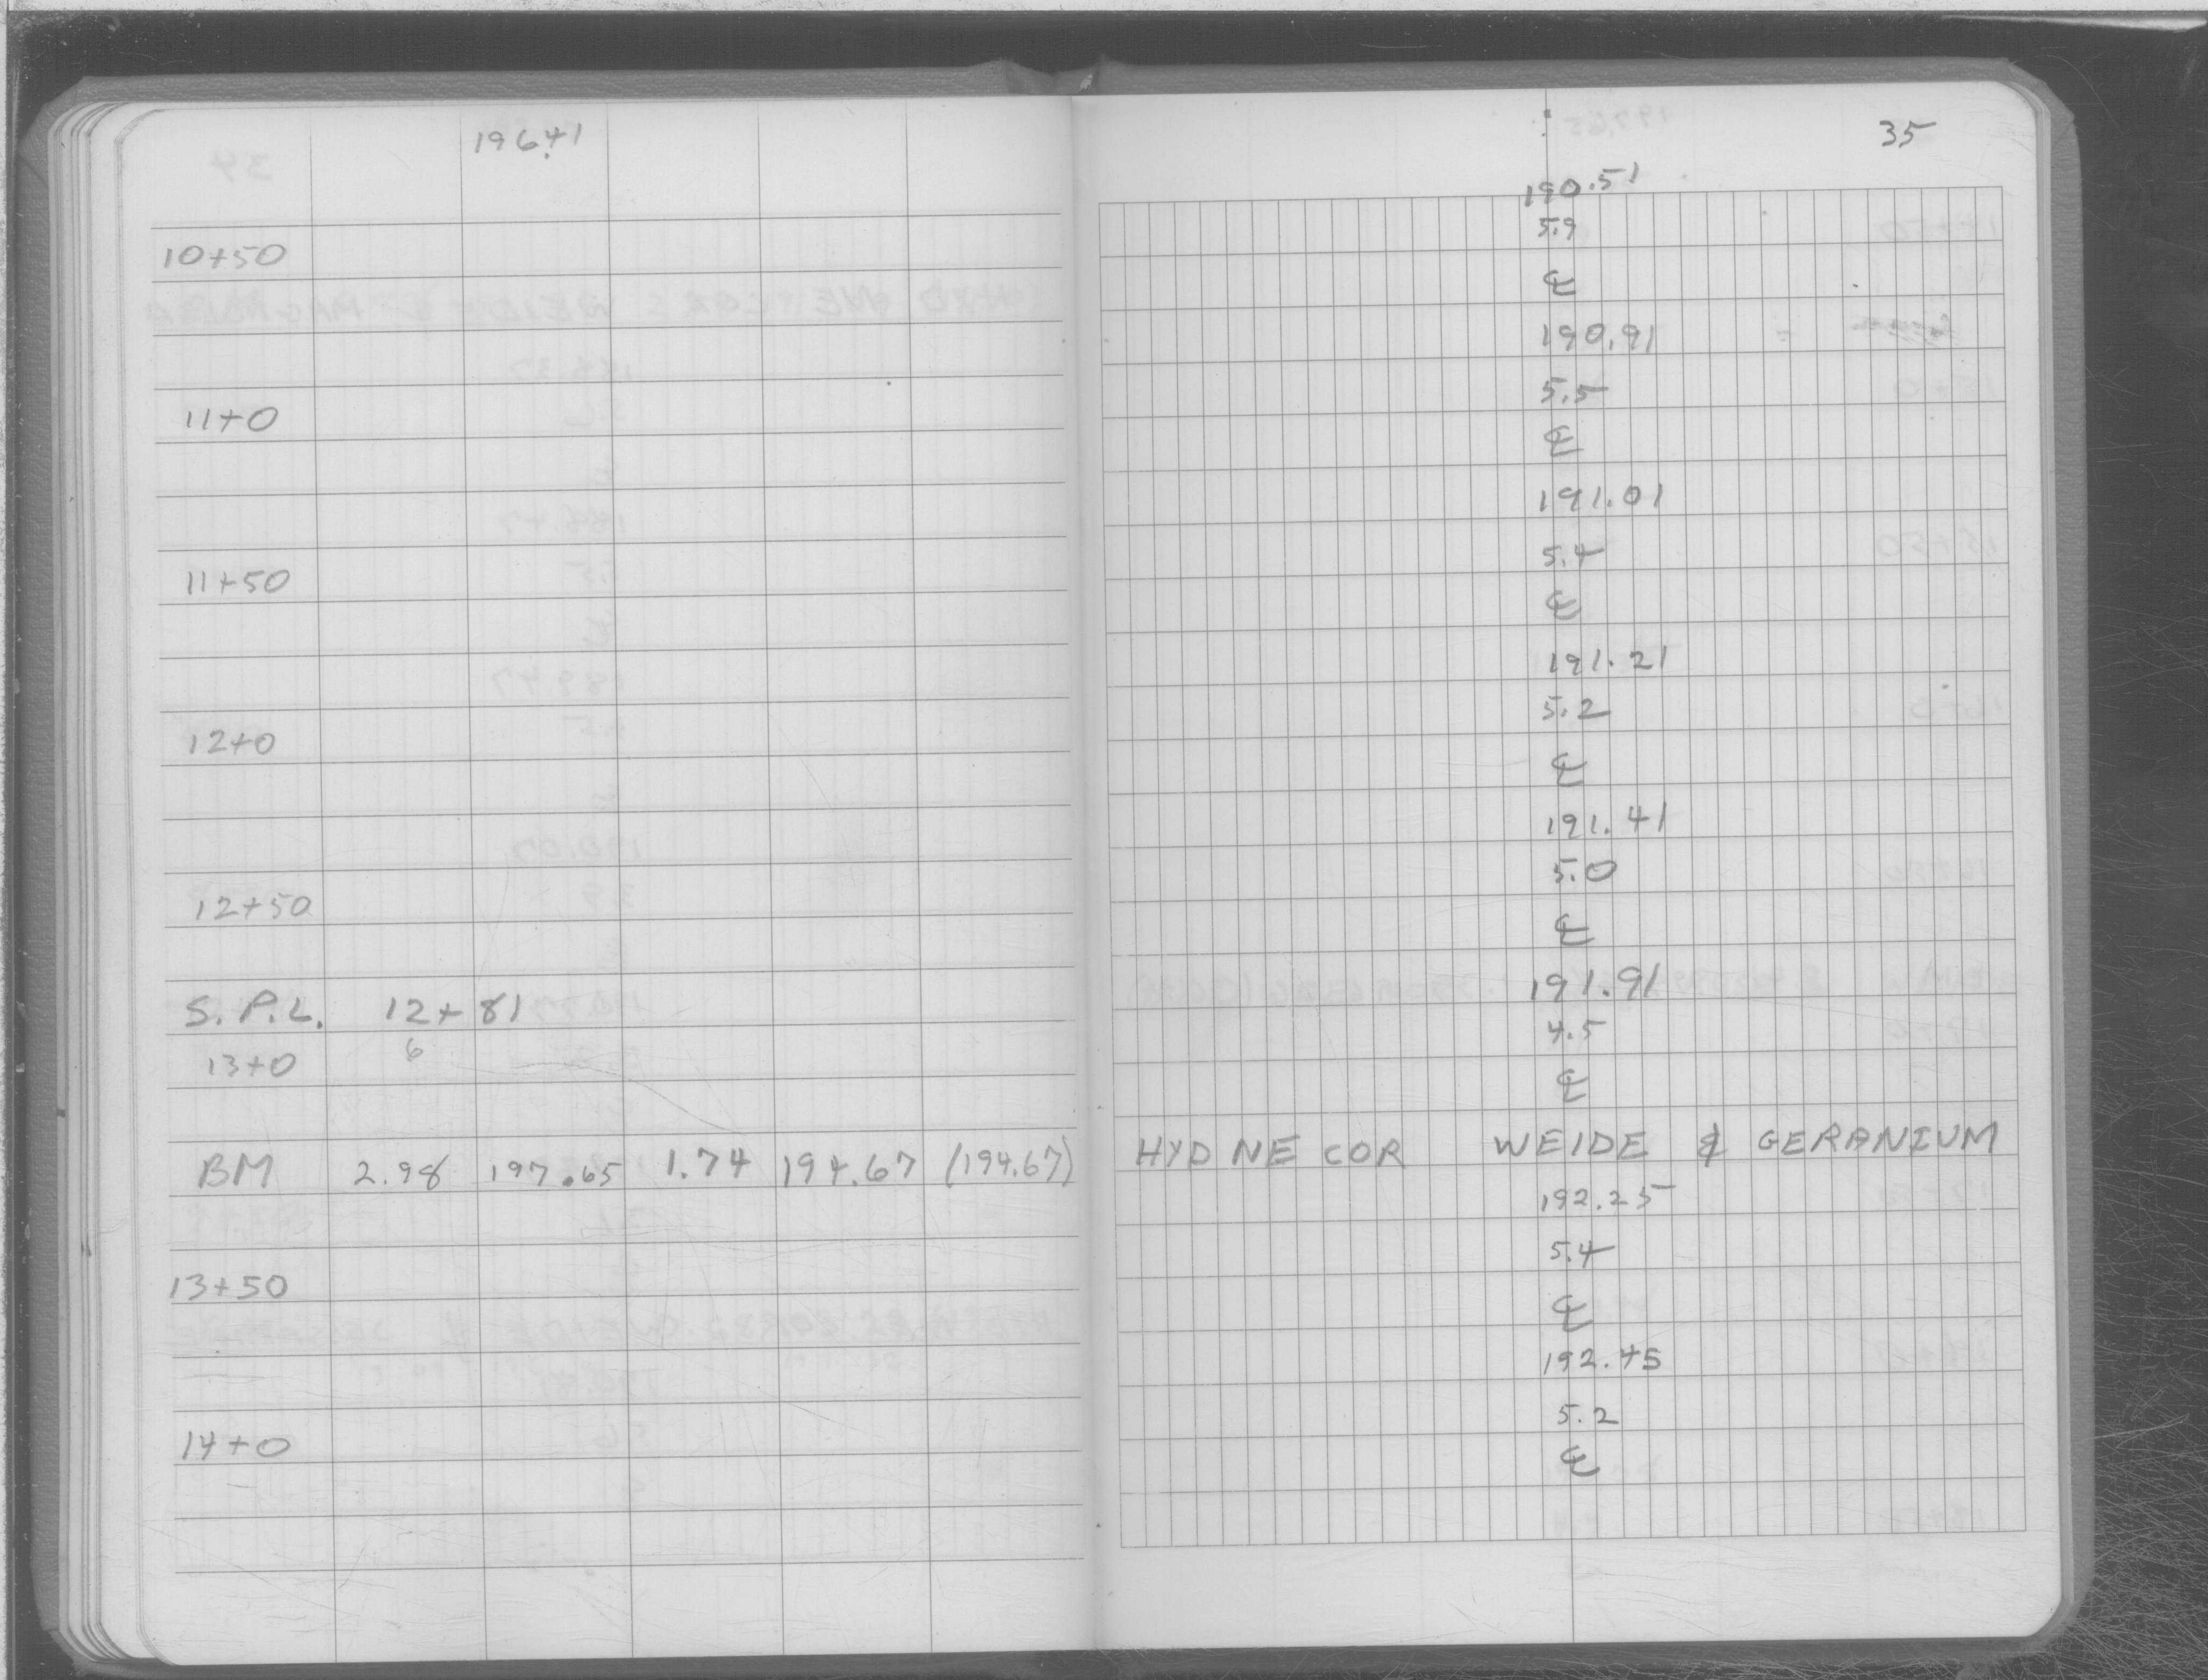 196.41
10+50
11+0
11+50
12+0
12+50
S.P.L. 12+81
6
13+0
BM 2.98 197.65 1.74 194.67 (194.67)
13+50
14+0
35
190.51
5.9
℄
190.91
5.5
℄
191.01
5.4
℄
191.21
5.2
℄
191.41
5.0
℄
191.91
4.5
℄
HYD NE COR WEIDE & GERANIUM
192.25
5.4
℄
192.45
5.2
℄